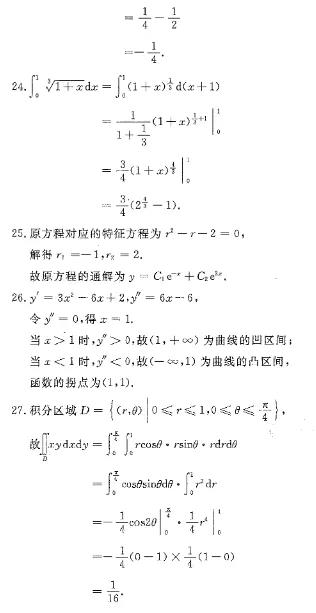 = 1/4 - 1/2
= -1/4.
24. ∫₀¹ ∛(1+x) dx = ∫₀¹ (1+x)^(1/3) d(x+1)
= 1/(1+1/3) (1+x)^(1/3+1) |₀¹
= 3/4 (1+x)^(4/3) |₀¹
= 3/4 (2^(4/3) - 1).
25. 原方程对应的特征方程为 r² - r - 2 = 0,
解得 r₁ = -1, r₂ = 2.
故原方程的通解为 y = C₁e^(-x) + C₂e^(2x).
26. y′ = 3x² - 6x + 2, y″ = 6x - 6,
令 y″ = 0, 得 x = 1.
当 x > 1 时, y″ > 0, 故(1, +∞) 为曲线的凹区间;
当 x < 1 时, y″ < 0, 故(-∞, 1) 为曲线的凸区间,
函数的拐点为(1,1).
27. 积分区域 D = {(r,θ) | 0 ⩽ r ⩽ 1, 0 ⩽ θ ⩽ π/4},
故∬_D xydxdy = ∫₀^(π/4) ∫₀¹ rcosθ · rsinθ · rdrdθ
= ∫₀^(π/4) cosθsinθdθ · ∫₀¹ r³dr
= -1/4 cos2θ |₀^(π/4) · 1/4 r⁴ |₀¹
= -1/4 (0-1) × 1/4 (1-0)
= 1/16.